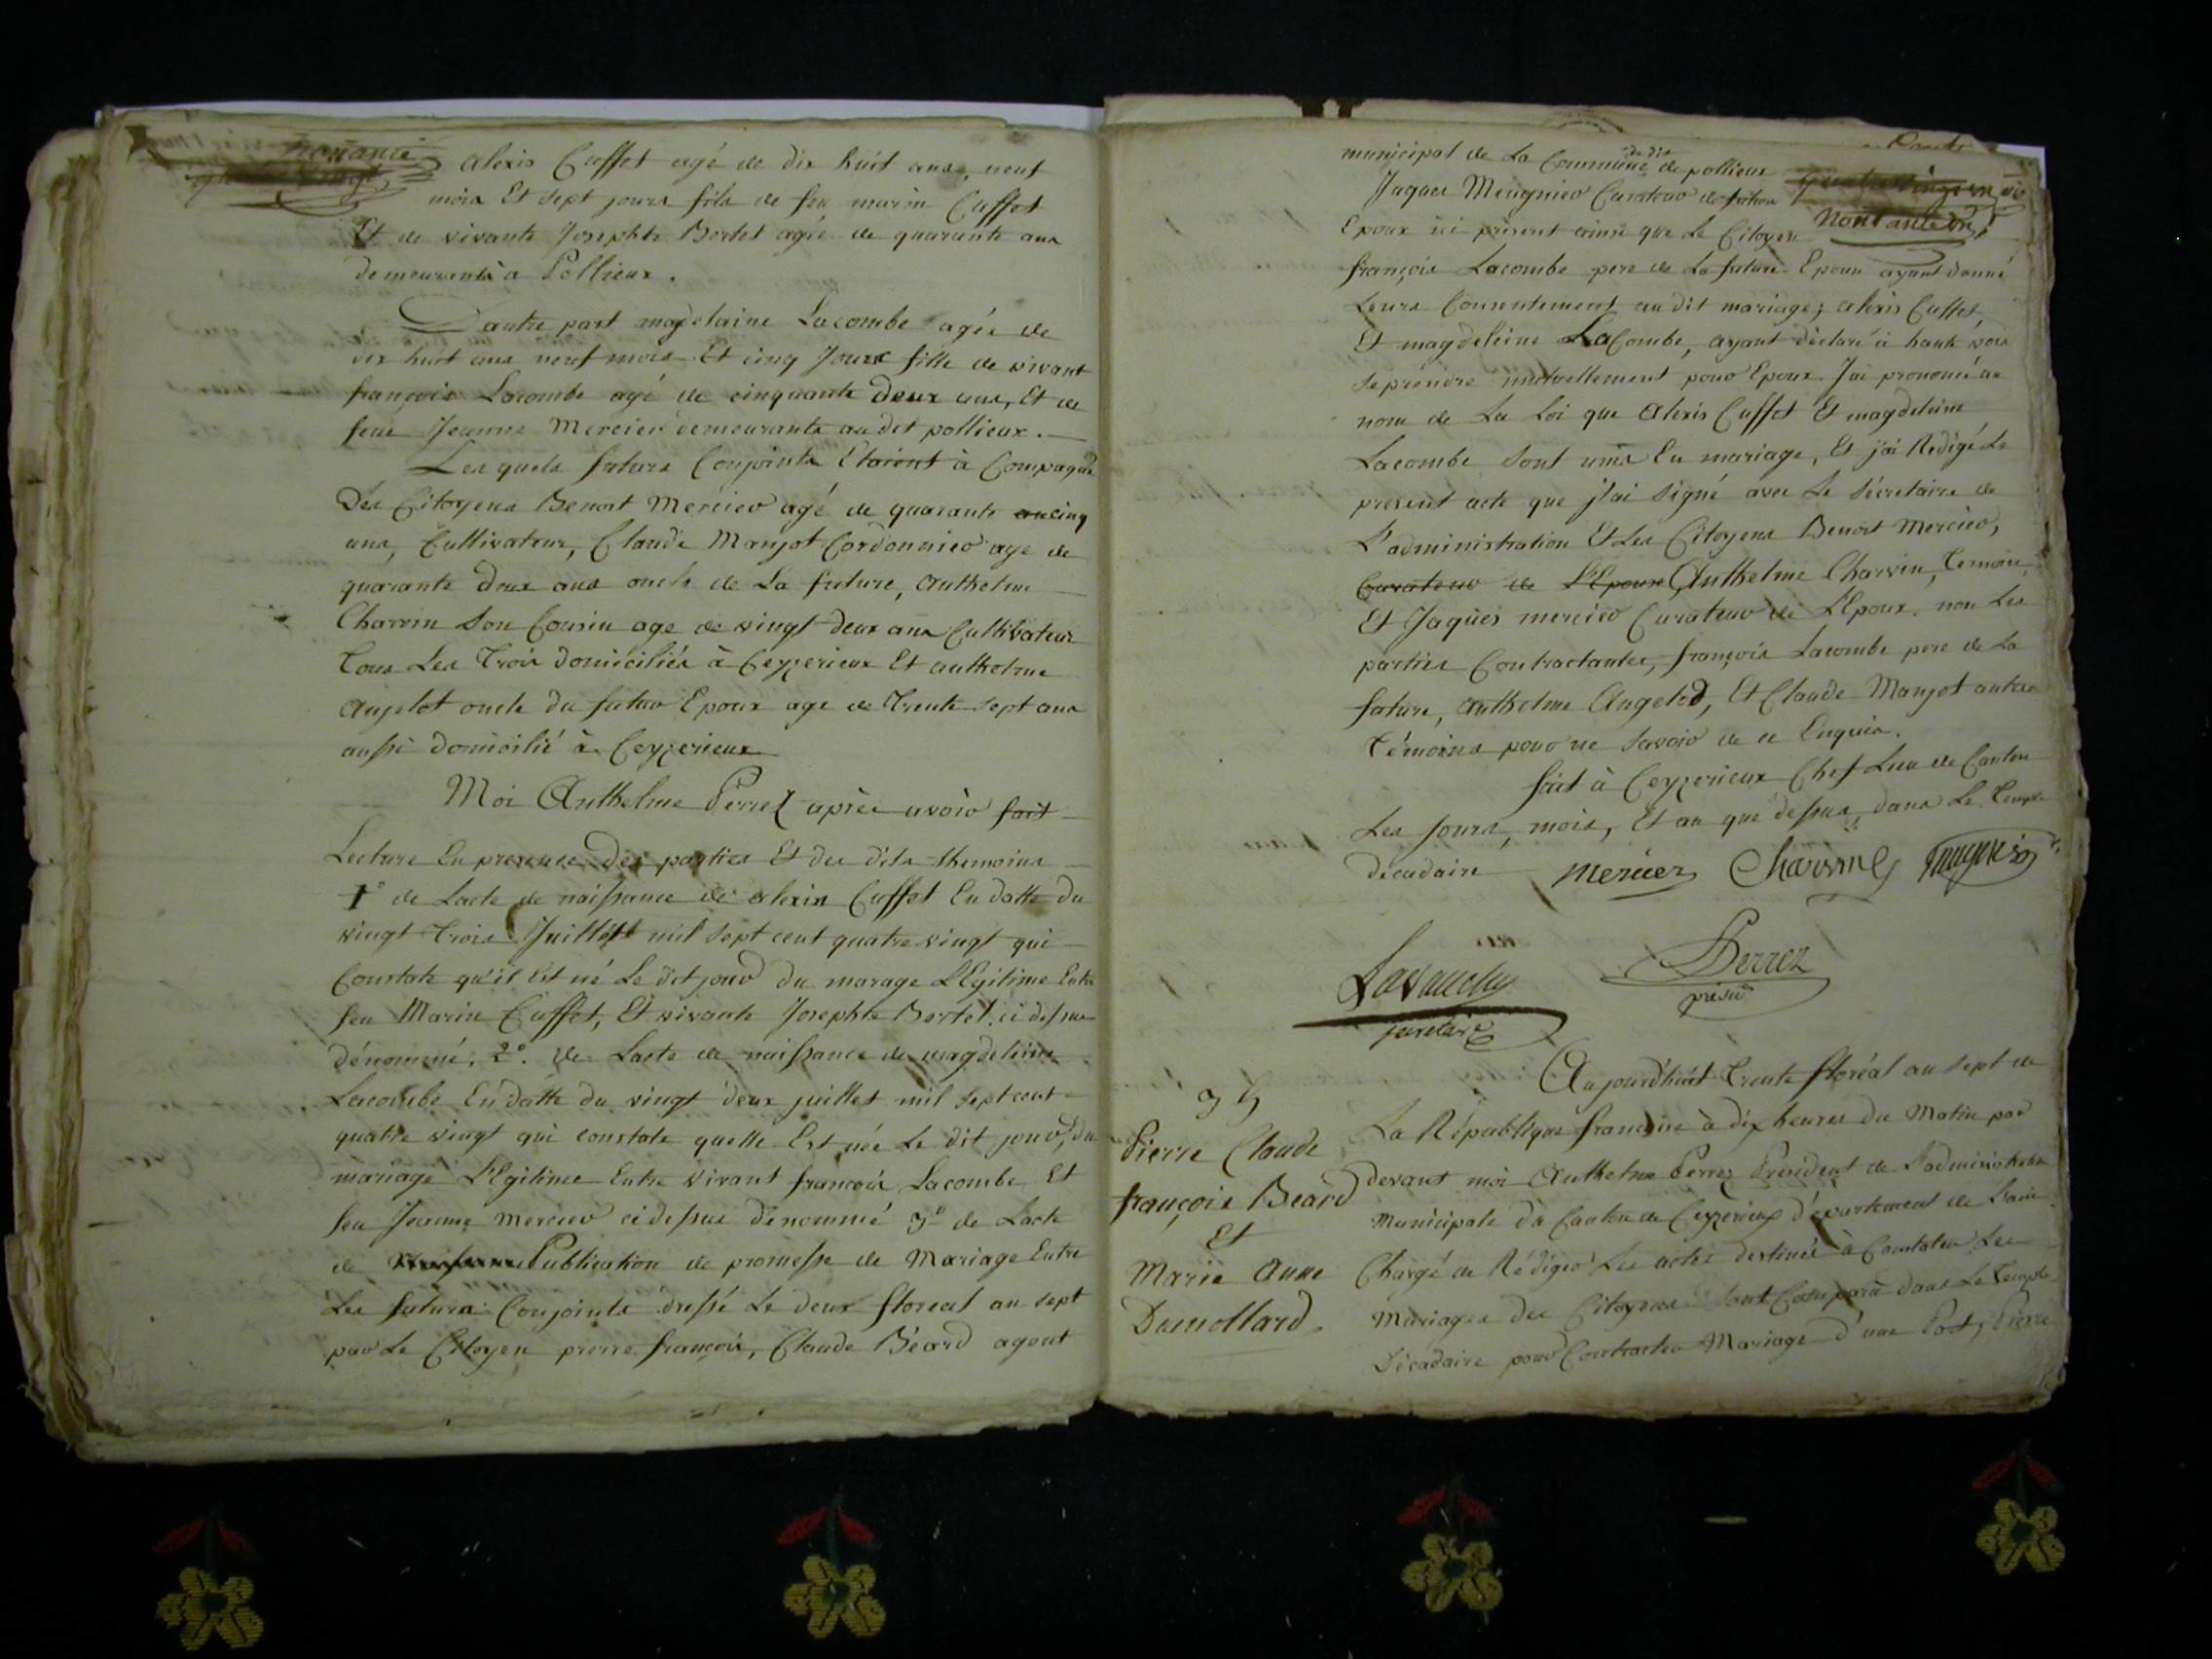 nonante
alexis Cuffet agé de dix huit ans, neuf
mois Et sept jours fils de feu marin Cuffet
Et de vivante Josephte Bertet agée de quarante ans
demeurants à Pollieux.
D'autre part magdelaine Lacombe agée de
dix huit ans neuf mois Et cinq Jours fille de vivant
françois Lacombe agé de cinquante deux ans, Et de
feue Jeanne Mercier demeurants au dit pollieux.
Les quels futurs Conjoints Etaient à Compagné
Des Citoyens Benoit Mercier agé de quarante cinq
ans, Cultivateur, Claude Manjot Cordonnier age de
quarante deux ans oncle de La future, Anthelme
Charvin Son Cousin age de vingt deux ans Cultivateur
Tous Les Trois domiciliés à Ceyzerieux Et anthelme
Angelot oncle du futur Epoux age de Trente sept ans
aussi domicilié à Ceyzerieux
Moi Anthelme Perrez après avoir fait
Lecture En presence Des parties Et des dits themoins
1° de Lacte de naissance de alexis Cuffet En datte du
vingt Trois Juillet mil sept cent quatre vingt qui
Constate qu'il Est né Le dit jour du marage L'Egitime Entre
feu Marin Cuffet, Et vivante Josephte Bertet, ci dessus
dénommé. 2°. de Lacte de naissance de magdeleine
Lacombe En datte du vingt deux juillet mil sept cent
quatre vingt qui constate quelle Est née Le dit jour, du
mariage L'Egitime Entre vivant françois Lacombe, Et
feu Jeanne Mercier ci dessus dénommé 3° de Lacte
de Publication de promesse de Mariage Entre
Les futurs Conjoints dressé Le deux floreal an sept
par Le Citoyen pierre françois, Claude Béard agent
municipal de La Commune du dit de pollieux
Jaques Meugnier Curateur du futur
nonante un
Epoux ici présent ainsi que Le Citoyen
françois Lacombe pere de La future Epouse ayant donné
Leurs Consentement au dit mariage; alexis Cuffet,
Et magdeleine LaCombe, ayant déclaré à haute voix
se prendre mutuellement pour Epoux. J'ai prononcé au
nom de La Loi que Alexis Cuffet Et magdeleine
Lacombe Sont unis En mariage, Et j'ai Redigé Le
present acte que j'ai Signé avec Le Sécretaire de
L'administration Et Les Citoyens Benoit Mercier,
Curateur de L'Epouse Anthelme Charvin, Temoins,
Et Jaques mercier Curateur de L'Epoux. non Les
parties Contractantes, françois Lacombe pere de La
future, Anthelme Angelod, Et Claude Manjot autres
Témoins pour ne Savoir de ce Enquis.
fait à Ceyzerieux Chef Lieu de Canton
Les Jours, mois, Et an que dessus, dans Le Temple
décadaire Mercier Charvin
Perrez
présid
secretaire
Aujourdhuit Trente floréal an sept de
La République francaise à dix heures du Matin par
devant moi Anthelme Perrez President de L'administration
Municipale du Canton de Ceyzerieux département de Lain
Chargé de Rédiger Les actes destinés à Constater Les
Mariages des Citoyens Sont Comparu dans Le Temple
Décadaire pour Contracter Mariage d'une Part, Pierre
Pierre Claude
françois Beard
Et
Marie Anne
Dumollard